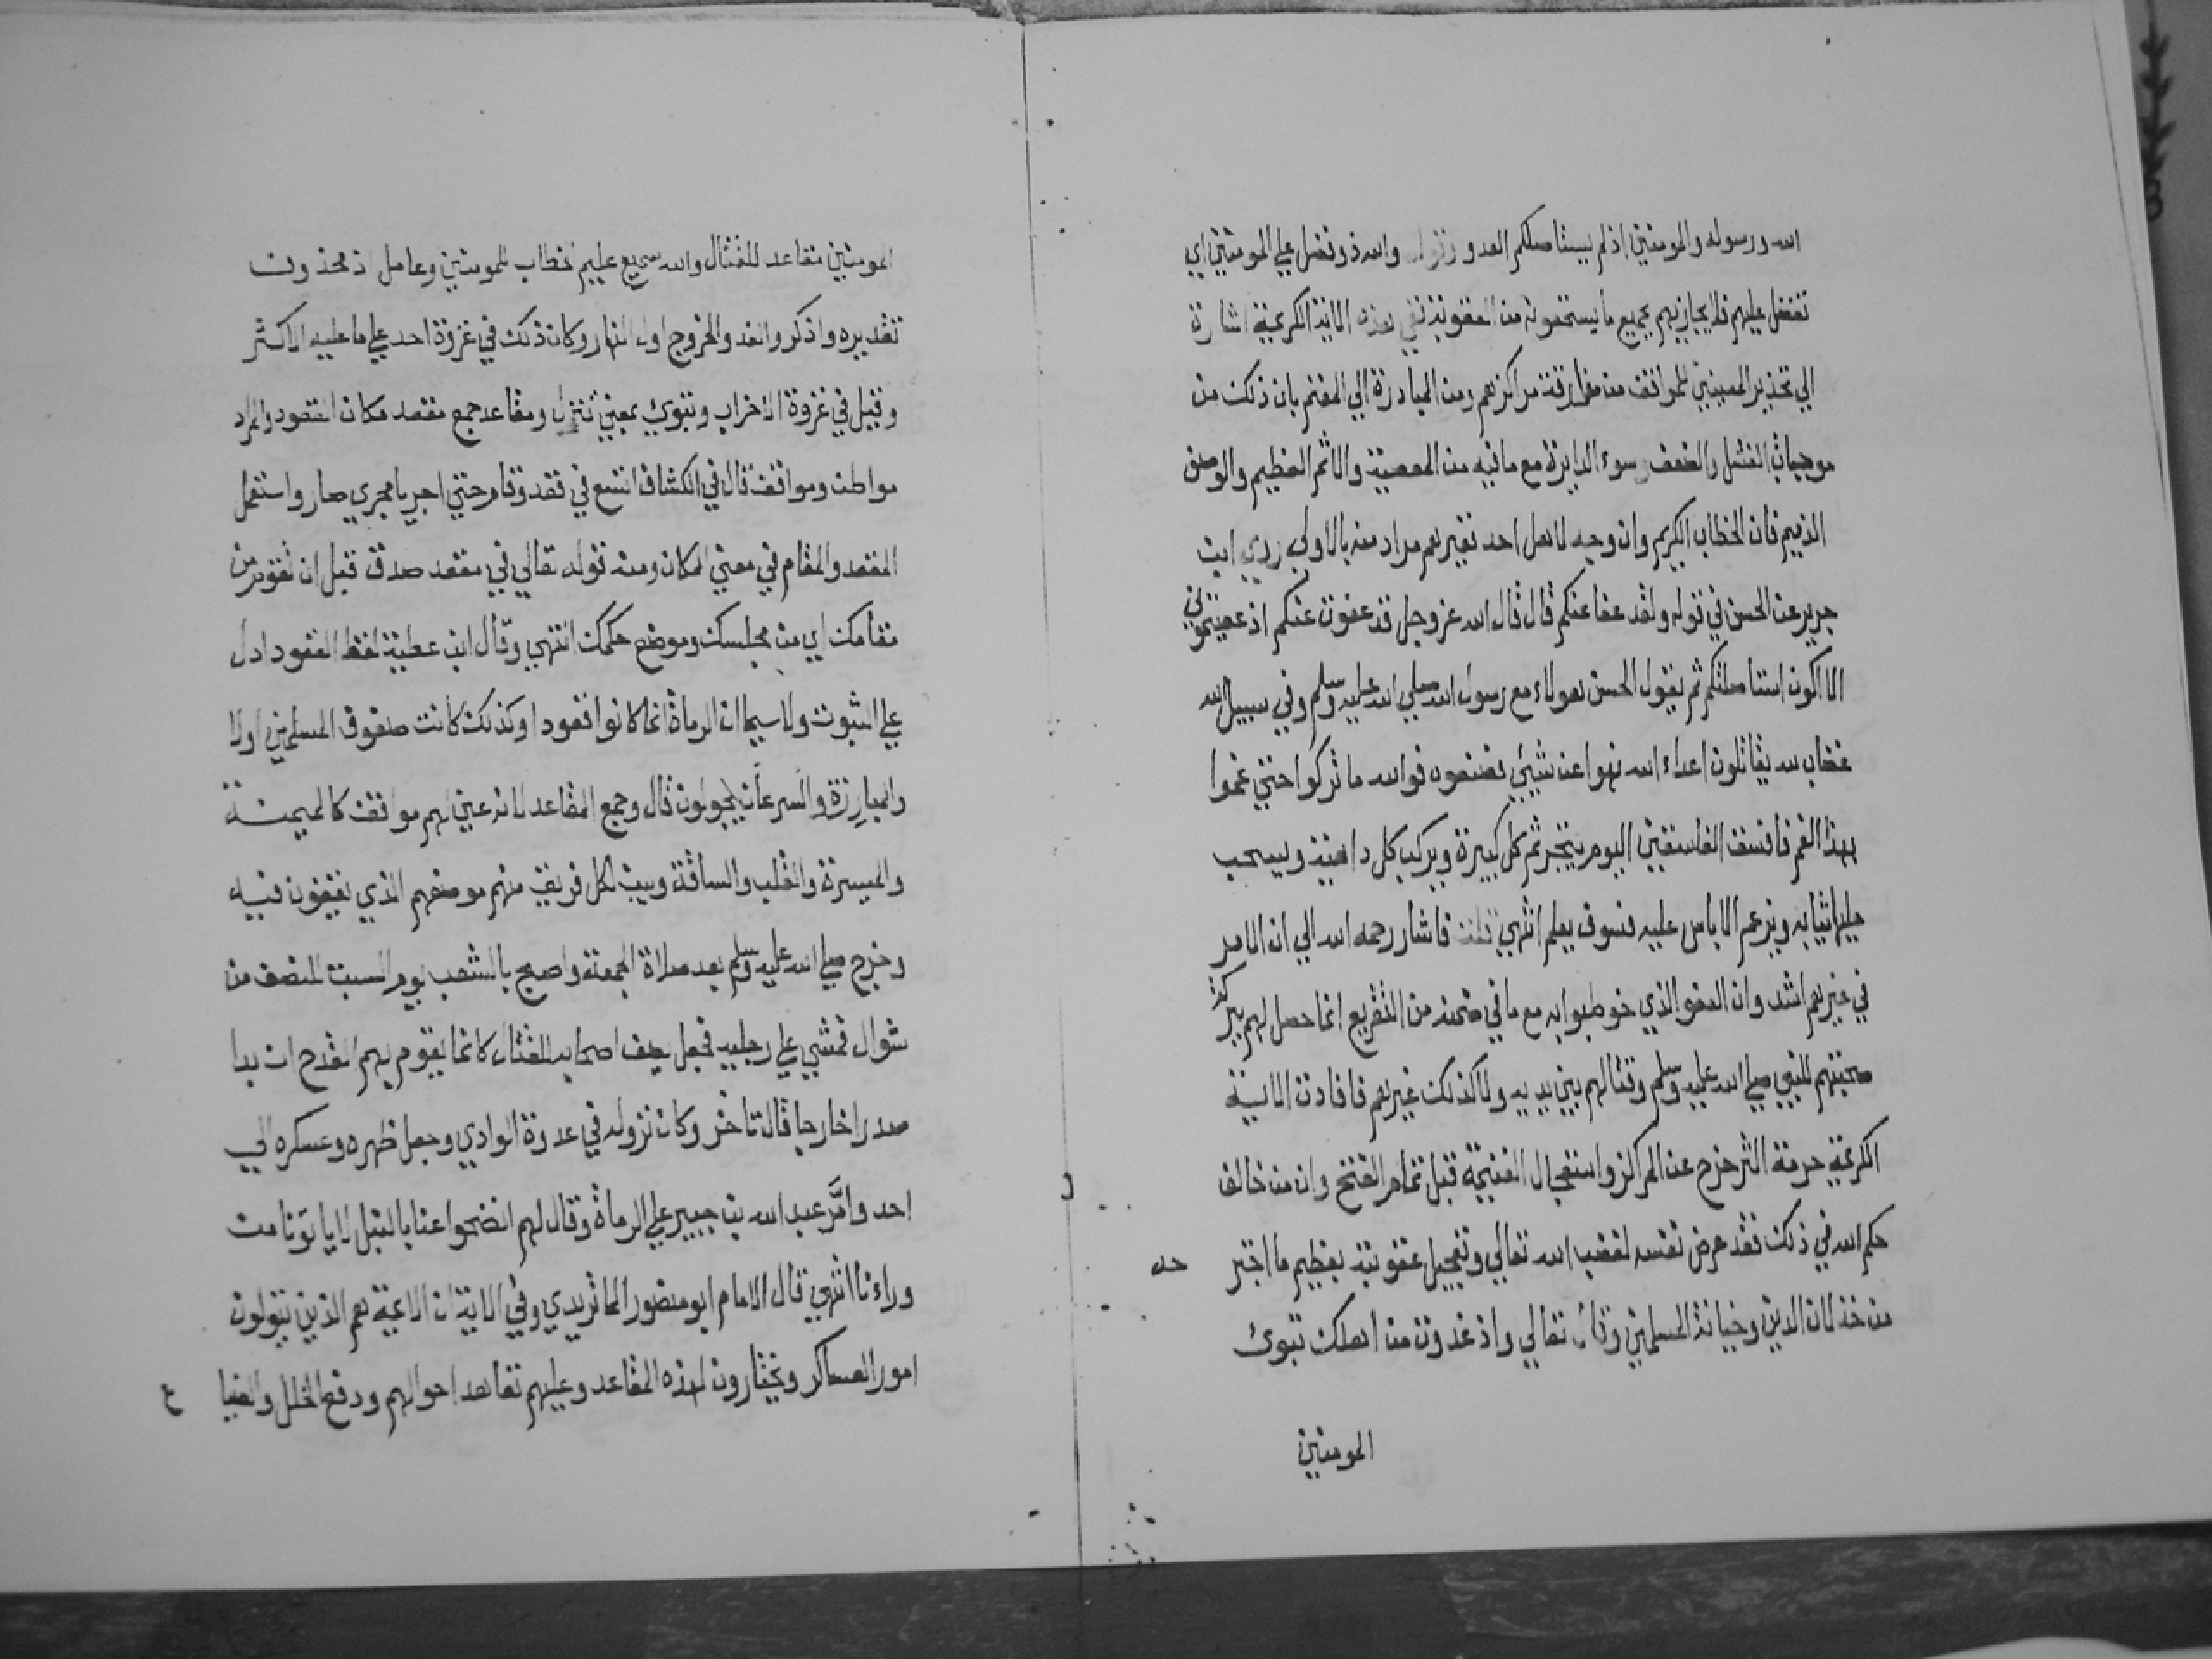 الله ورسوله والمومنين اذلم يستاصلكم العدو وقوله والله ذو فضل علي المومنين اي
تفضل عليهم فلا يجازيهم بجميع ما يستحقونه من العقوبة ففي هذه الاية الكريمة اشارة
الي تحذير المعينين للمواقف من مفارقة مراكزهم ومن المبادرة الي المغنم بان ذلك من
موجبات الفشل والضعف وسوء الدايرة مع ما فيه من المعصية والاثم العظيم والوصف
الذميم فان الخطاب الكريم وان وجه لاهل احد فغيرهم مراد منه بالاولي روي ابن
جرير عن الحسن في قوله ولقد عفا عنكم قال قال الله عز وجل قد عفوت عنكم اذ عصيتموني
الا اكون استاصلتكم ثم يقول الحسن هولاء مع رسول الله صلي الله عليه وسلم وفي سبيل الله
غضاب لله يقاتلون اعداء الله نهوا عن شيئ فصنعوه فوالله ما تركوا حتي غموا
بهذا الغم فافسق الفاسقين اليوم يتجرثم كل كبيرة ويركب كل داهية ويسحب
عليها ثيابه ويزعم الا باس عليه فسوف يعلم انتهي قلت فاشار رحمه الله الي ان الامر
في غيرهم اشد وان العفو الذي خوطبوا به مع ما في ضمنه من التقريع انما حصل لهم ببركة
صحبتهم للنبي صلي الله عليه وسلم وقتالهم بين يديه ولا كذلك غيرهم فافادت الاية
الكريمة حرمة التزحزح عن المركز واستعجال الغنيمة قبل تمام الفتح وان من خالف
حكم الله في ذلك فقد عرض نفسه لغضب الله تعالي وتعجيل عقوبته بعظيم ما اجتر حه
من خذلان الدين وخيانة المسلمين وقال تعالي واذ غدوت من اهلك تبوئ
المومنين
المومنين مقاعد للقتال والله سميع عليم خطاب للمومنين وعامل اذ محذوف
تقديره واذكروا الغدو الخروج اول النهار وكان ذلك في غزوة احد علي ما عليه الاكثر
وقيل في غزوة الاحزاب وتبوئ بمعني تنزل ومقاعد جمع مقعد مكان القعود والمراد
مواطن ومواقف قال في الكشاف اتسع في قعد وقام حتي اجريا مجري صار واستعمل
المقعد والمقام في معني المكان ومنه قوله تعالي في مقعد صدق قبل ان تقوم من
مقامك اي من مجلسك وموضع حكمك انتهي وقال ابن عطية لفظ القعود ادل
علي الثبوت ولا سيما ان الرماة انما كانوا قعودا وكذلك كانت صفوف المسلمين اولا
والمبارزة والسرعان يجولون قال وجمع المقاعد لانه عين لهم مواقف كالميمنة
والميسرة والقلب والساقة وبين لكل فريق منهم موضعهم الذي يقفون فيه
وخرج صلي الله عليه وسلم بعد صلاة الجمعة واصبح بالشعب يوم السبت للنصف من
شوال فمشي علي رجليه فجعل يصف اصحابه للقتال كانما يقوم بهم القدح ان بدا
صدر اخارجا قال تاخر وكان نزوله في عدوة الوادي وجعل ظهره وعسكره الي
احد وامَّر عبد الله بن جبير علي الرماة وقال لهم انضحوا عنا بالنبل لا ياتونا من
وراءنا انتهي قال الامام ابو منصور الماتريدي وفي الاية ان الايمة هم الذين يتولون
امور العساكر ويختارون لهذه المقاعد وعليهم تعاهد احوالهم ودفع الخلل والضيا ع